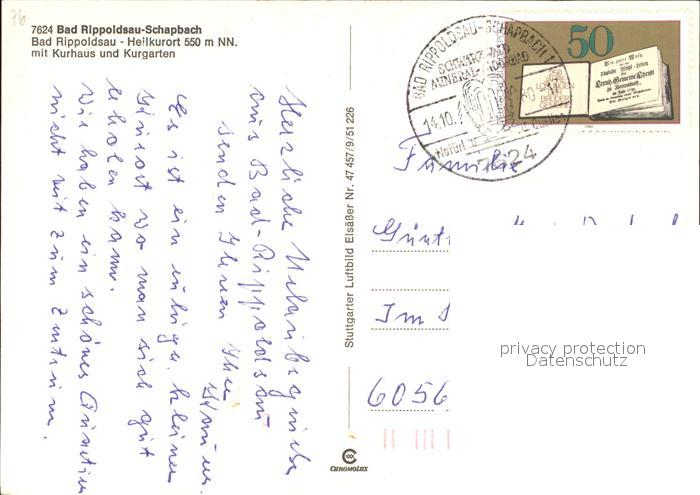 76
7624 Bad Rippoldsau-Schapbach
Bad Rippoldsau - Heilkurort 550 m NN.
mit Kurhaus und Kurgarten
Herzliche Urlaubsgrüße
aus Bad-Rippoldsau
senden Ihnen Ihre
Es ist ein ruhiger kleiner
wo man sich gut
erholen kann.
Wir haben ein schönes
nicht weit zum Zentrum.
Stuttgarter Luftbild Elsäßer Nr. 47 457/9/51 226
CHROMOLUX
BAD RIPPOLDSAU-SCHAPBACH 1
SCHWARZWALD
MINERAL-MOORBAD
14.10.
7624
50
Familie
Günt
Im
6056
privacy protection
Datenschutz